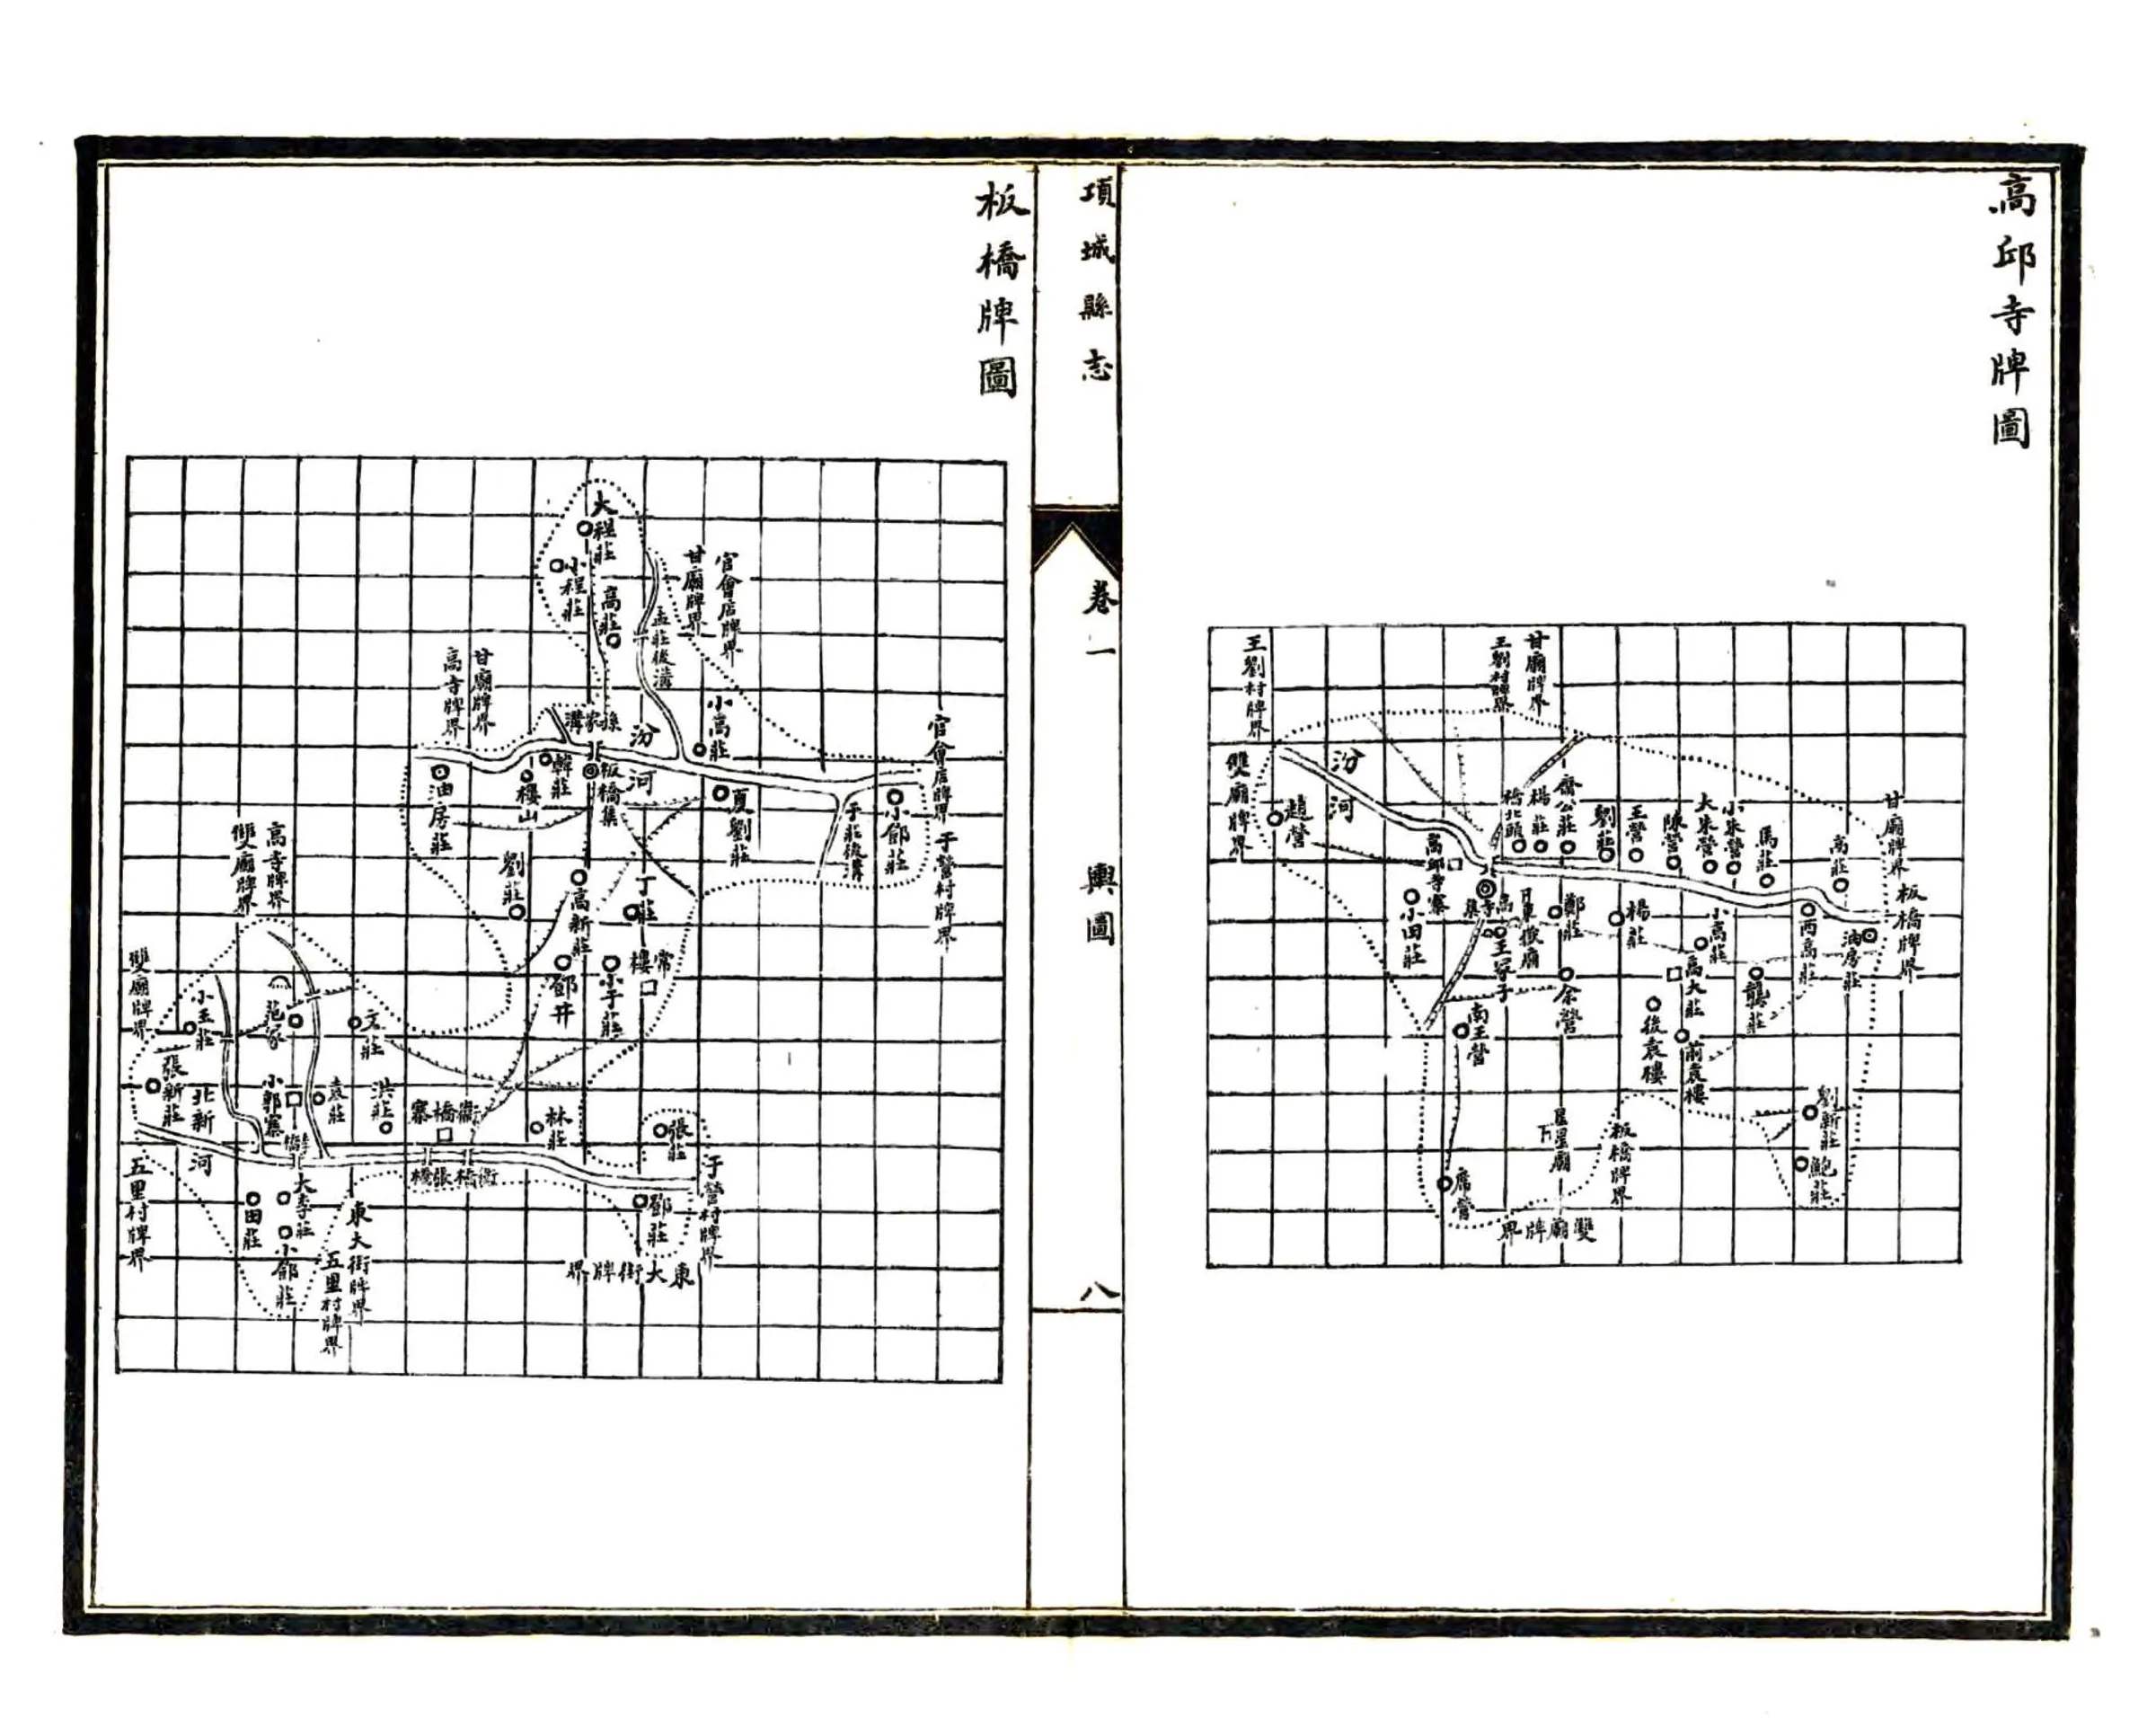 高邱寺牌圖
王劉村牌界
甘廟牌界
王劉村牌界
雙廟牌界
汾河
趙營
橋北頭
楊莊
齊公莊
劉莊
王營
陳營
大朱營
小朱營
馬莊
高莊
甘廟牌界
板橋牌界
高邱寺寨
小田莊
高寺集
東嶽廟
王冢子
鄭莊
楊莊
小高莊
西高莊
油房莊
高大莊
龔莊
余營
南王營
後袁樓
前袁樓
劉新莊
鮑莊
席營
板橋牌界
雙廟牌界
項城縣志
卷一
輿圖
八
板橋牌圖
大程莊
小程莊
高莊
孟莊後溝
甘廟牌界
官會店牌界
高寺牌界
甘廟牌界
孫家溝
汾河
小高莊
官會店牌界
油房莊
樓山
韓莊
板橋集
夏劉莊
于莊後溝
小鄧莊
于營村牌界
雙廟牌界
高寺牌界
劉莊
高新莊
丁莊
常樓
鄧井
小于莊
雙廟牌界
小王莊
范冢
文莊
張新莊
北新河
小郭寨
袁莊
洪莊
衛橋寨
林莊
張莊
張橋
衛橋
五里村牌界
田莊
大李莊
小鄧莊
五里村牌界
東大街牌界
鄧莊
于營村牌界
東大街牌界